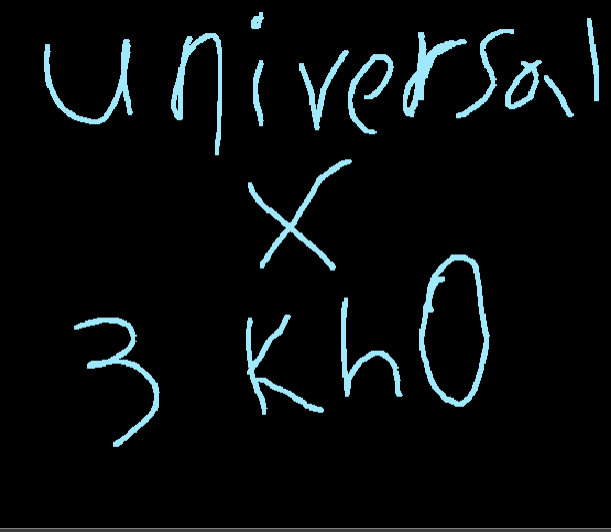 universal
X
3 Kh0